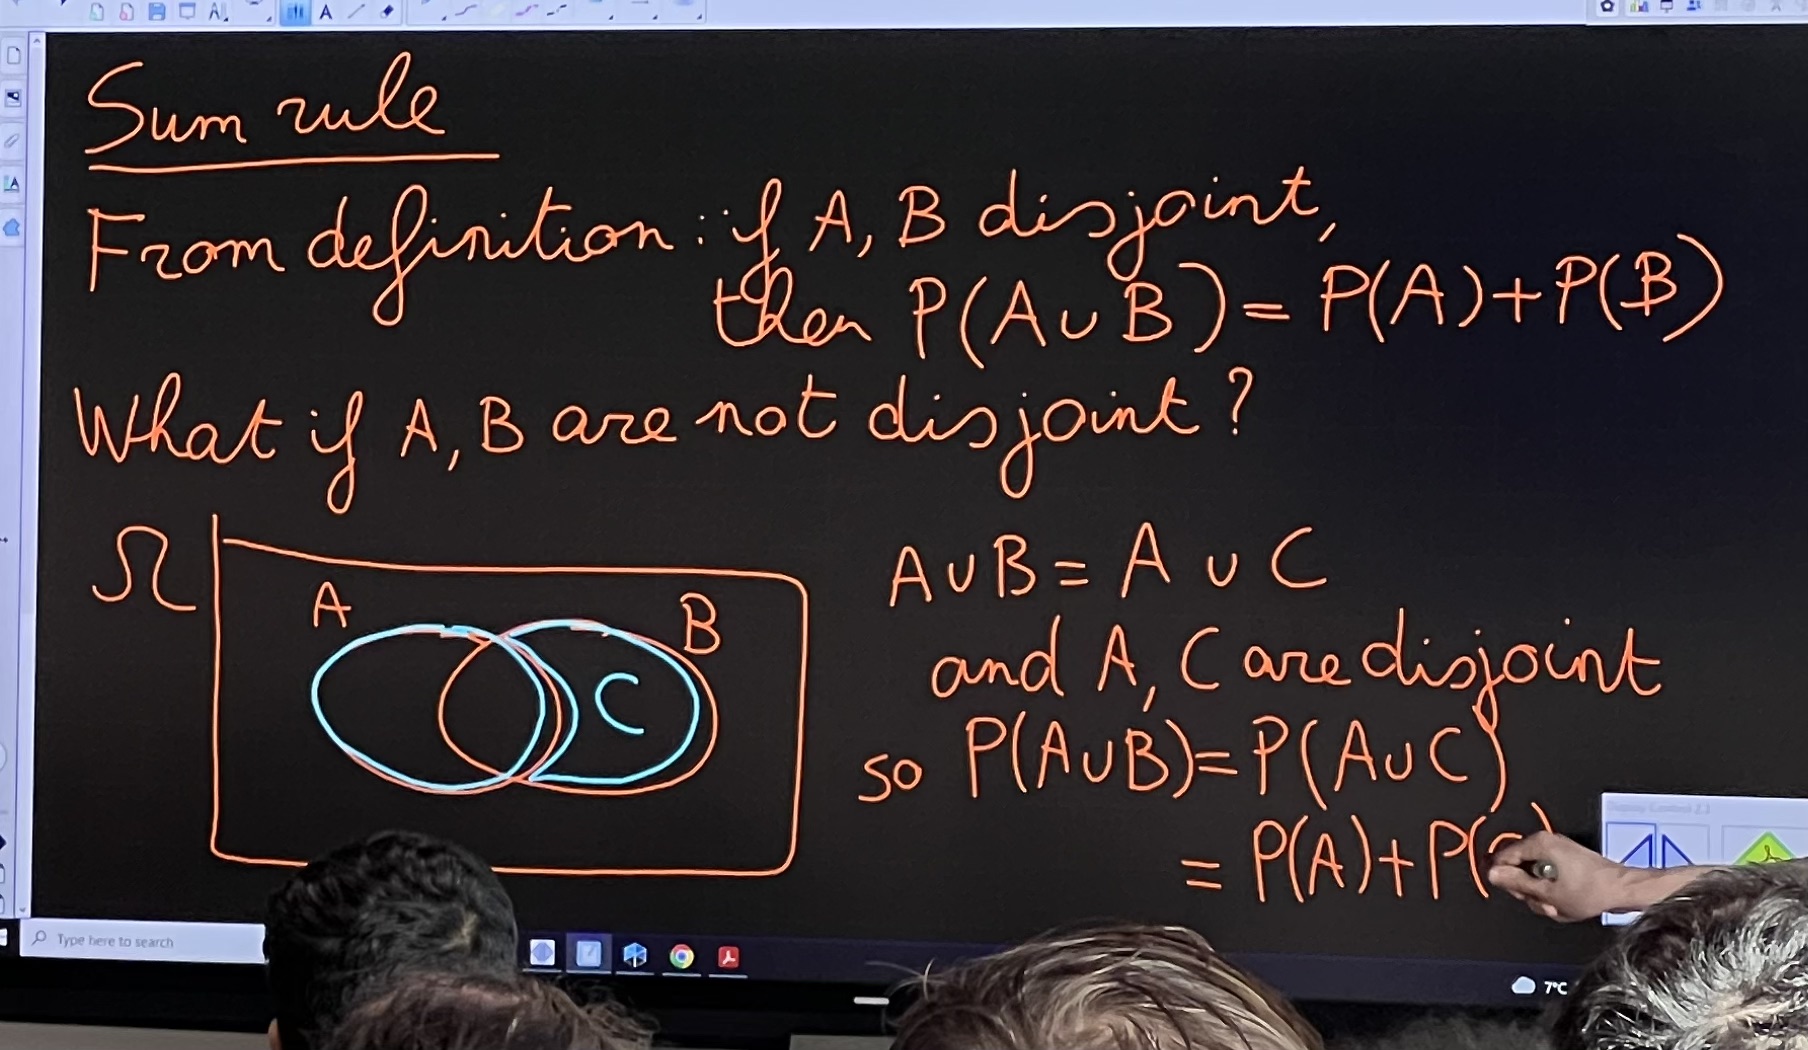 Sum rule
From definition: if A, B disjoint,
then P(A∪B) = P(A)+P(B)
What if A, B are not disjoint?
Ω
A
B
C
A∪B = A ∪ C
and A, C are disjoint
so P(A∪B) = P(A∪C)
= P(A)+P(C)
Type here to search
7°C